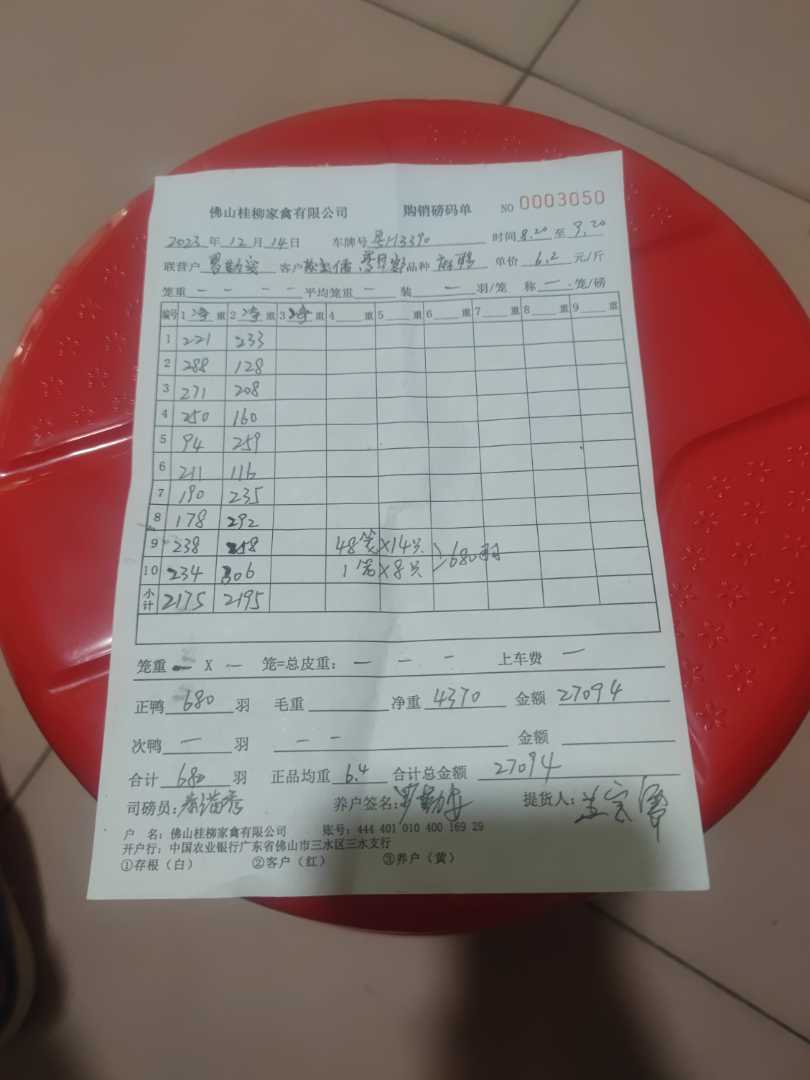 佛山桂柳家禽有限公司 购销磅码单 NO 0003050
2023年12月14日 车牌号粤H3390 时间8.20至9.20
联营户 客户 品种 单价6.2元/斤
笼重 — — — — 平均笼重 — 装 — 羽/笼 称 — 笼/磅
编号 1净重 2净重 3净重 4 重 5 重 6 重 7 重 8 重 9 重
1 221 233
2 288 128
3 271 208
4 250 160
5 94 259
6 211 116
7 190 235
8 178 292
9 238 258 48笼×14只
10 234 306 1笼×8只 680羽
小计 2175 2195
笼重 — X — 笼=总皮重: — — — 上车费 —
正鸭 680 羽 毛重 净重 4370 金额 27094
次鸭 — 羽 — — 金额
合计 680 羽 正品均重 6.4 合计总金额 27094
司磅员: 养户签名: 提货人:
户 名: 佛山桂柳家禽有限公司 账号: 444 401 010 400 169 29
开户行: 中国农业银行广东省佛山市三水区三水支行
①存根(白) ②客户(红) ③养户(黄)